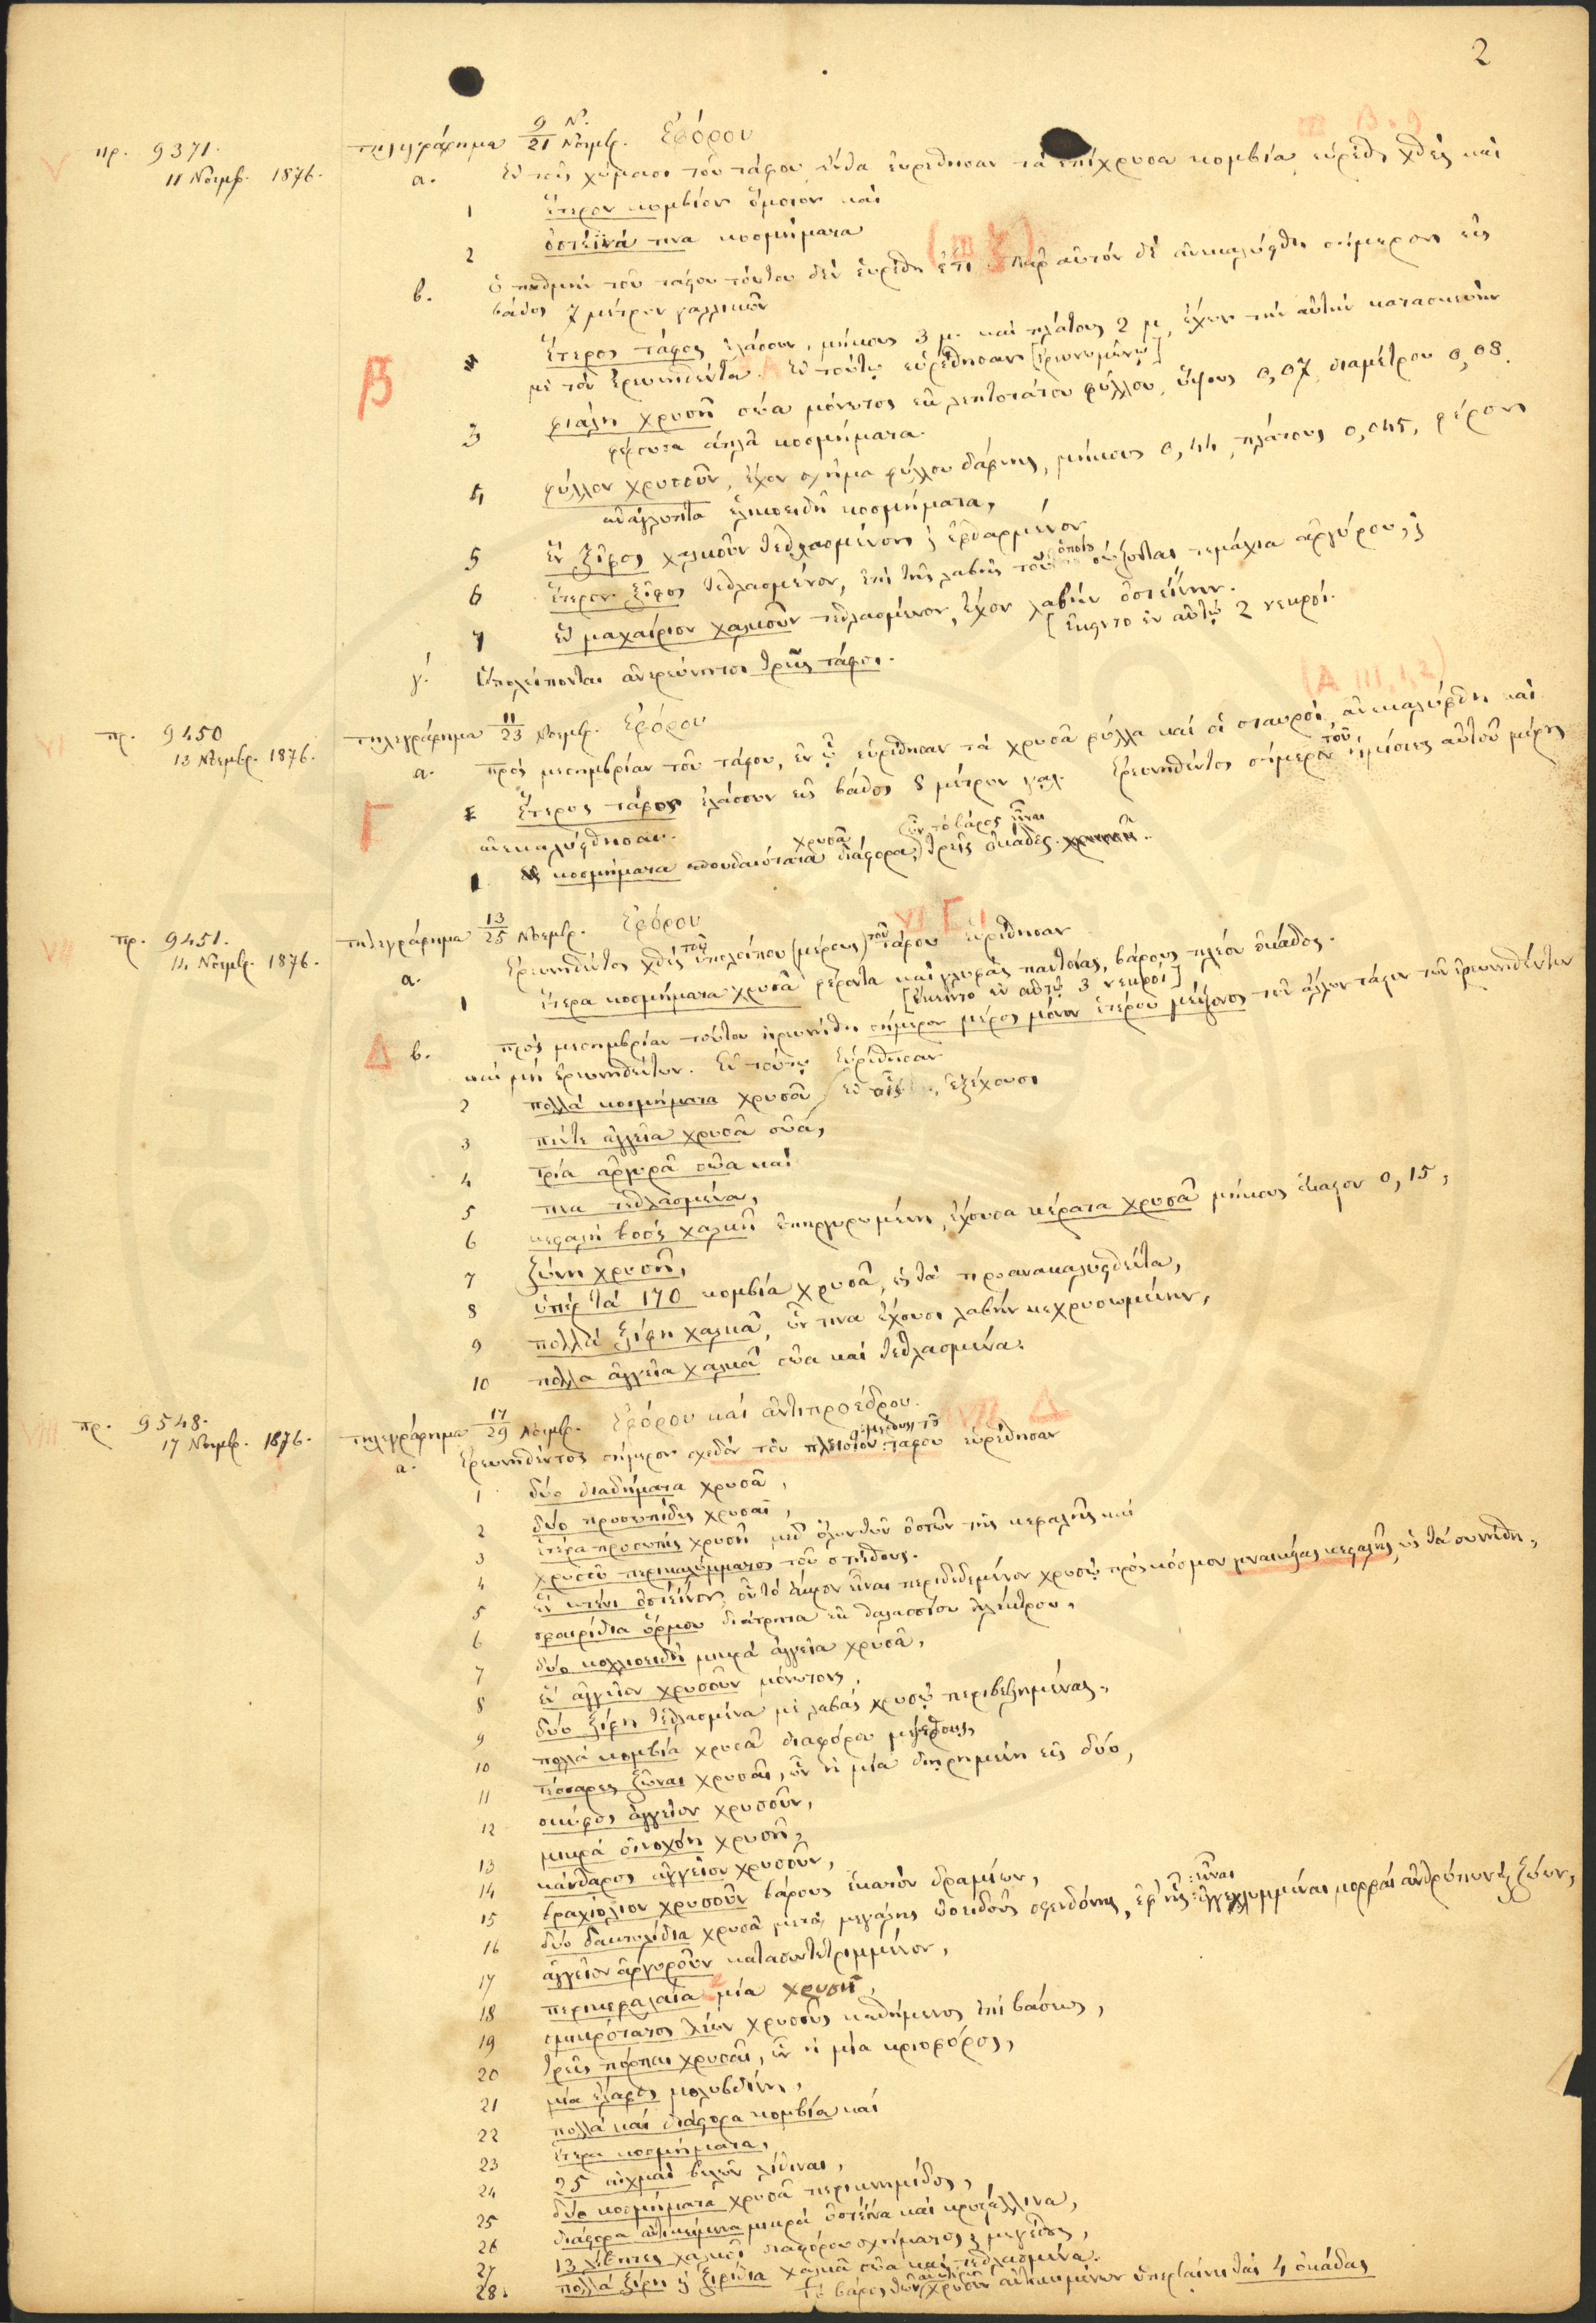 2
V πρ. 9371. τηλεγράφημα 9/21 Νοεμβρ. Ἐφόρου
11 Νοεμβρ. 1876.
α. Ἐν τοῖς χώμασι τοῦ τάφου, ἔνθα εὑρέθησαν τὰ ἐπίχρυσα κομβία, εὑρέθη χθὲς καὶ
1 ἕτερον κομβίον ὅμοιον καὶ
2 ὀστέϊνά τινα κοσμήματα
β. ὁ πυθμὴν τοῦ τάφου τούτου δὲν εὑρέθη ἔτι. Παρ' αὐτὸν δὲ ἀνεκαλύφθη σήμερον εἰς
βάθος 7 μέτρων γαλλικῶν
Β ἕτερος τάφος ἐλάσσων, μήκους 3 μ. καὶ πλάτους 2 μ, ἔχων τὴν αὐτὴν κατασκευὴν
μὲ τὸν ἐρευνηθέντα. Ἐν τούτῳ εὑρέθησαν [ἐρευνωμένῳ]
3 φιάλη χρυσῆ σῶα μόνωτος ἐκ λεπτοτάτου φύλλου, ὕψους 0,07, διαμέτρου 0,08.
φέρουσα ἁπλᾶ κοσμήματα.
4 φύλλον χρυσοῦν, ἔχον σχῆμα φύλλου δάφνης, μήκους 0,44, πλάτους 0,045, φέρον
ἀνάγλυπτα ἑλικοειδῆ κοσμήματα,
5 ἓν ξίφος χαλκοῦν τεθλασμένον ἐφθαρμένον
6 ἕτερον ξίφος τεθλασμένον, ἐπὶ τῆς λαβῆς τοῦ ὁποίου σώζονται τεμάχια ἀργύρου,
7 ἓν μαχαίριον χαλκοῦν τεθλασμένον, ἔχον λαβὴν ὀστεΐνην.
[ἔκειντο ἐν αὐτῷ 2 νεκροί.
γ. Ὑπολείπονται ἀνερεύνητοι τρεῖς τάφοι.
(Α III, 1, 2)
VI πρ. 9450 τηλεγράφημα 11/23 Νοεμβρ. Ἐφόρου
13 Νοεμβρ. 1876.
α. πρὸς μεσημβρίαν τοῦ τάφου, ἐν ᾧ εὑρέθησαν τὰ χρυσᾶ φύλλα καὶ οἱ σταυροί, ἀνεκαλύφθη καὶ
Γ ἕτερος τάφος ἐλάσσων εἰς βάθος 8 μέτρων γαλ. Ἐρευνηθέντος σήμερον τοῦ ἡμίσεος αὐτοῦ μέρους
ἀνεκαλύφθησαν.
1 κοσμήματα σπουδαιότατα χρυσᾶ, διάφορα, ὧν τὸ βάρος εἶναι τρεῖς ὀκάδες.
VII πρ. 9451. τηλεγράφημα 13/25 Νοεμβρ. Ἐφόρου VI Γ 1
14 Νοεμβρ. 1876.
α. Ἐρευνηθέντος χθὲς τοῦ ὑπολοίπου (μέρους) τοῦ τάφου εὑρέθησαν
1 ἕτερα κοσμήματα χρυσᾶ φέροντα καὶ γλυφὰς παντοίας, βάρους πλέον ὀκάδος.
[ἔκειντο ἐν αὐτῷ 3 νεκροί]
Δ β. πρὸς μεσημβρίαν τούτου ἠρευνήθη σήμερον μέρος μόνον ἑτέρου μείζονος τῶν ἄλλων τάφων τῶν ἐρευνηθέντων
καὶ μὴ ἐρευνηθέντων. Ἐν τούτῳ εὑρέθησαν
2 πολλὰ κοσμήματα χρυσᾶ ἐν οἷς ἐξέχουσι
3 πέντε ἀγγεῖα χρυσᾶ σῶα,
4 τρία ἀργυρᾶ σῶα καὶ
5 τινα τεθλασμένα,
6 κεφαλὴ βοὸς χαλκῆ ἐπηργυρωμένη, ἔχουσα κέρατα χρυσᾶ μήκους ἕκαστον 0,15,
7 ζώνη χρυσῆ,
8 ὑπὲρ τὰ 170 κομβία χρυσᾶ, ὡς τὰ προανακαλυφθέντα,
9 πολλὰ ξίφη χαλκᾶ, ὧν τινα ἔχουσι λαβὴν κεχρυσωμένην,
10 πολλὰ ἀγγεῖα χαλκᾶ σῶα καὶ τεθλασμένα.
VIII πρ. 9548. τηλεγράφημα 17/29 Νοεμβρ. Ἐφόρου καὶ ἀντιπροέδρου. VII Δ
17 Νοεμβρ. 1876.
α. Ἐρευνηθέντος σήμερον σχεδὸν τοῦ πλείστου μέρους τοῦ τάφου εὑρέθησαν
1 δύο διαδήματα χρυσᾶ,
2 δύο προσωπίδες χρυσαῖ,
3 ἑτέρα προσωπὶς χρυσῆ μεθ' ὁλοκλήρων ὀστῶν τῆς κεφαλῆς καὶ
4 χρυσοῦ περικαλύμματος τοῦ στήθους.
5 ἓν κτένι ὀστέϊνον, οὗ τὸ ἄκρον εἶναι περιδεδεμένον χρυσῷ πρὸς κόσμον γυναικείας κεφαλῆς, ὡς τὰ συνήθη,
6 σφαιρίδια ὅρμου διάτρητα ἐκ θαλασσίου ἠλέκτρου,
7 δύο κοχλιοειδῆ μικρὰ ἀγγεῖα χρυσᾶ,
8 ἓν ἀγγεῖον χρυσοῦν μόνωτον,
9 δύο ξίφη τεθλασμένα μὲ λαβὰς χρυσῷ περιβεβλημένας,
10 πολλὰ κομβία χρυσᾶ διαφόρου μεγέθους,
11 τέσσαρες ζῶναι χρυσαῖ, ὧν ἡ μία διῃρημένη εἰς δύο,
12 σκύφος ἀγγεῖον χρυσοῦν,
13 μικρὰ οἰνοχόη χρυσῆ,
14 κάνθαρος ἀγγεῖον χρυσοῦν,
15 βραχιόλιον χρυσοῦν βάρους ἑκατὸν δραμίων,
16 δύο δακτυλίδια χρυσᾶ μετὰ μεγάλης ὠοειδοῦς σφενδόνης, ἐφ' ἧς εἶναι ἐγγεγλυμμέναι μορφαὶ ἀνθρώπων ζώων,
17 ἀγγεῖον ἀργυροῦν κατασυντετριμμένον,
18 περικεφαλαία μία χρυσῆ,
19 σμικρότατος λέων χρυσοῦς καθήμενος ἐπὶ βάσεως,
20 τρεῖς πόρπαι χρυσαῖ, ὧν ἡ μία κριοφόρος,
21 μία ἔλαφος μολυβδίνη,
22 πολλὰ καὶ διάφορα κομβία καὶ
23 ἕτερα κοσμήματα,
24 25 αἰχμαὶ βελῶν λίθιναι,
25 δύο κοσμήματα χρυσᾶ περικνημίδος,
26 διάφορα ἀντικείμενα μικρὰ ὀστέϊνα καὶ κρυστάλλινα,
27 13 λέβητες χαλκοῖ διαφόρου σχήματος μεγέθους,
28. πολλὰ ξίφη ξιφίδια χαλκᾶ σῶα καὶ τεθλασμένα.
τὸ βάρος τῶν χρυσῶν ἀντικειμένων ὑπερβαίνει τὰς 4 ὀκάδας